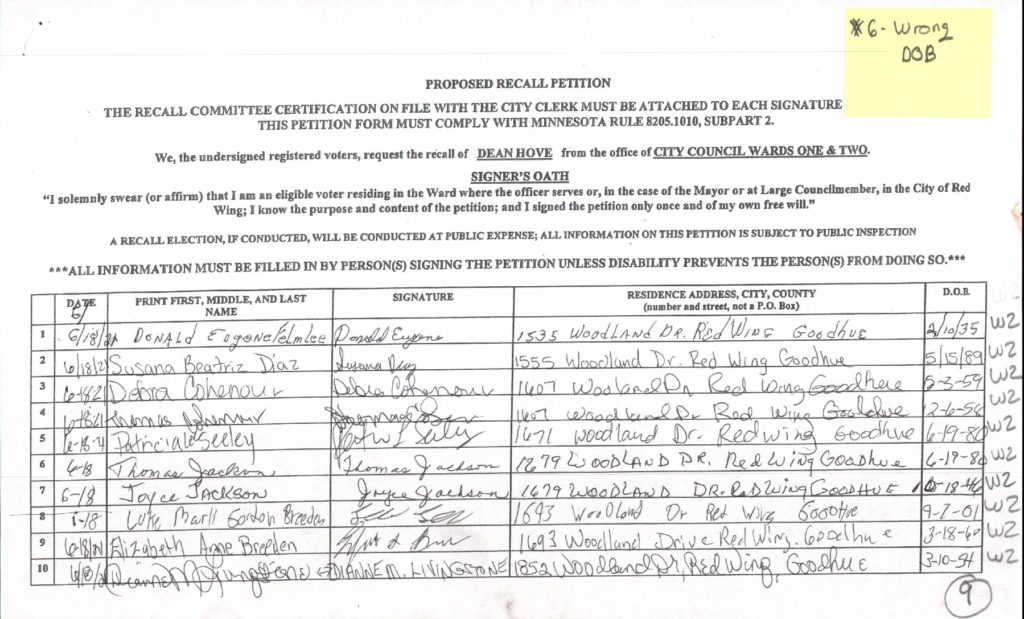 *6 - Wrong
DOB
PROPOSED RECALL PETITION
THE RECALL COMMITTEE CERTIFICATION ON FILE WITH THE CITY CLERK MUST BE ATTACHED TO EACH SIGNATURE
THIS PETITION FORM MUST COMPLY WITH MINNESOTA RULE 8205.1010, SUBPART 2.
We, the undersigned registered voters, request the recall of DEAN HOVE from the office of CITY COUNCIL WARDS ONE & TWO.
SIGNER'S OATH
“I solemnly swear (or affirm) that I am an eligible voter residing in the Ward where the officer serves or, in the case of the Mayor or at Large Councilmember, in the City of Red
Wing; I know the purpose and content of the petition; and I signed the petition only once and of my own free will.”
A RECALL ELECTION, IF CONDUCTED, WILL BE CONDUCTED AT PUBLIC EXPENSE; ALL INFORMATION ON THIS PETITION IS SUBJECT TO PUBLIC INSPECTION
***ALL INFORMATION MUST BE FILLED IN BY PERSON(S) SIGNING THE PETITION UNLESS DISABILITY PREVENTS THE PERSON(S) FROM DOING SO.***
DATE PRINT FIRST, MIDDLE, AND LAST NAME SIGNATURE RESIDENCE ADDRESS, CITY, COUNTY (number and street, not a P.O. Box) D.O.B.
1 6/18/21 DONALD Eugene Donald Eugene 1535 WOODLAND DR. RED WING GOODHUE 2/10/35 W2
2 6/18/21 Susana Beatriz Diaz Susana Diaz 1555 Woodland Dr. Red Wing Goodhue 5/15/89 W2
3 6-18-21 Debra Cohenour Debra Cohenour 1607 Woodland Dr Red Wing Goodhue 5-3-59 W2
4 6-18-21 Thomas Cohenour 1607 Woodland Dr Red Wing Goodhue 12-6-58 W2
5 6-18-21 Patricia Seeley 1671 Woodland Dr. Red Wing Goodhue 6-19-80 W2
6 6-18 Thomas Jackson Thomas Jackson 1679 WOODLAND DR. Red Wing Goodhue 6-19-80 W2
7 6-18 Joyce JACKSON Joyce Jackson 1679 WOODLAND DR. RED WING GOODHUE 18-46 W2
8 6-18 Luke Gordon Breeden 1693 Woodland Dr Red Wing Goodhue 9-7-01 W2
9 6/18/21 Elizabeth Anne Breeden 1693 Woodland Drive Red Wing. Goodhue 3-18-60 W2
10 Dianne M Livingstone DIANNE M. LIVINGSTONE 1852 Woodland Dr, Red Wing, Goodhue 3-10-54 W2
9